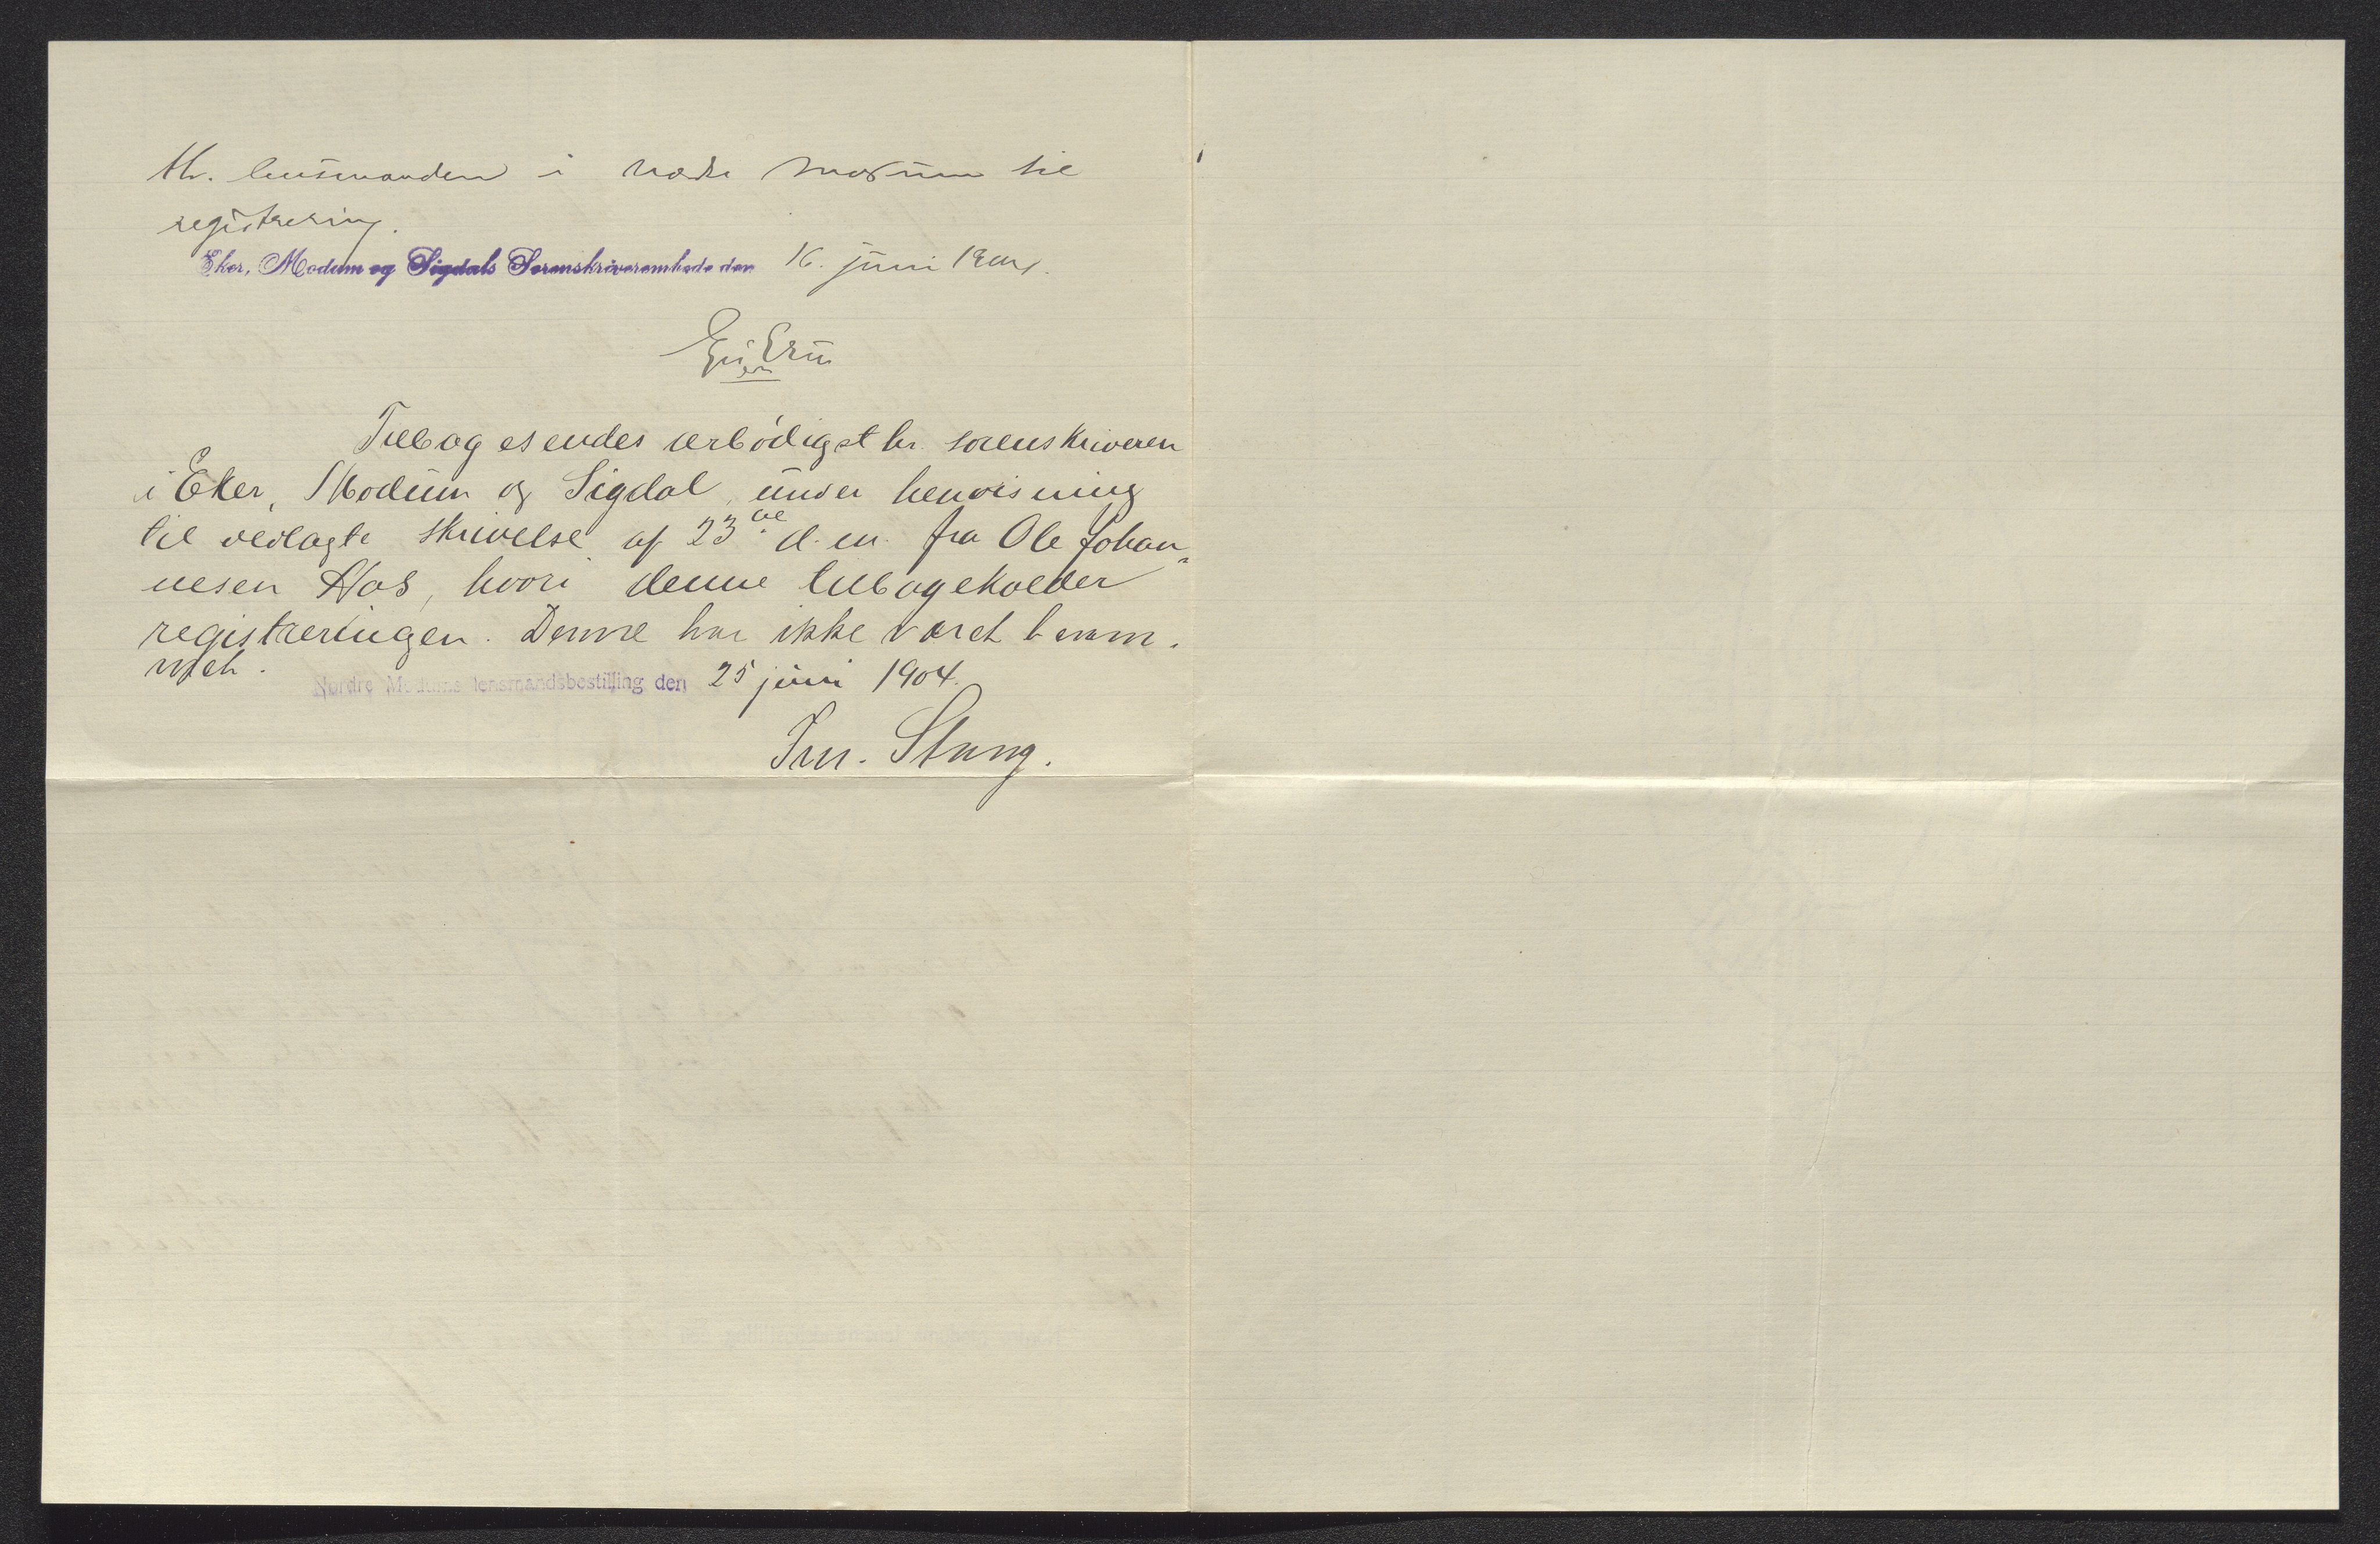 Hr. lensmanden i nordre Modum til
registrering.
Eker, Modum og Sigdals Sorenskriverembede den 16. juni 1904.
Tilbagesendes ærbødigst hr. sorenskriveren
i Eker, Modum og Sigdal under henvisning
til vedlagte skrivelse af 23de d.m. fra Ole Johan-
nesen Aas, hvori denne tilbagekalder
registreringen. Denne har ikke været beram-
met.
Nordre Modums lensmandsbestilling den 25 juni 1904.
Stang.